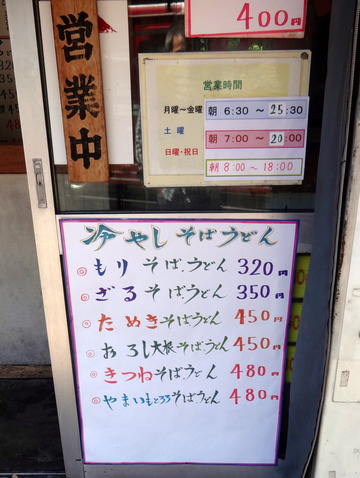 400円
営業中
営業時間
月曜～金曜 朝 6:30 ～ 25:30
土曜 朝 7:00 ～ 20:00
日曜・祝日 朝 8:00 ～ 18:00
冷やしそばうどん
もりそば.うどん 320円
ざるそば.うどん 350円
たぬきそばうどん 450円
おろし大根そばうどん 450円
きつねそば.うどん 480円
やまいもとろろそばうどん 480円